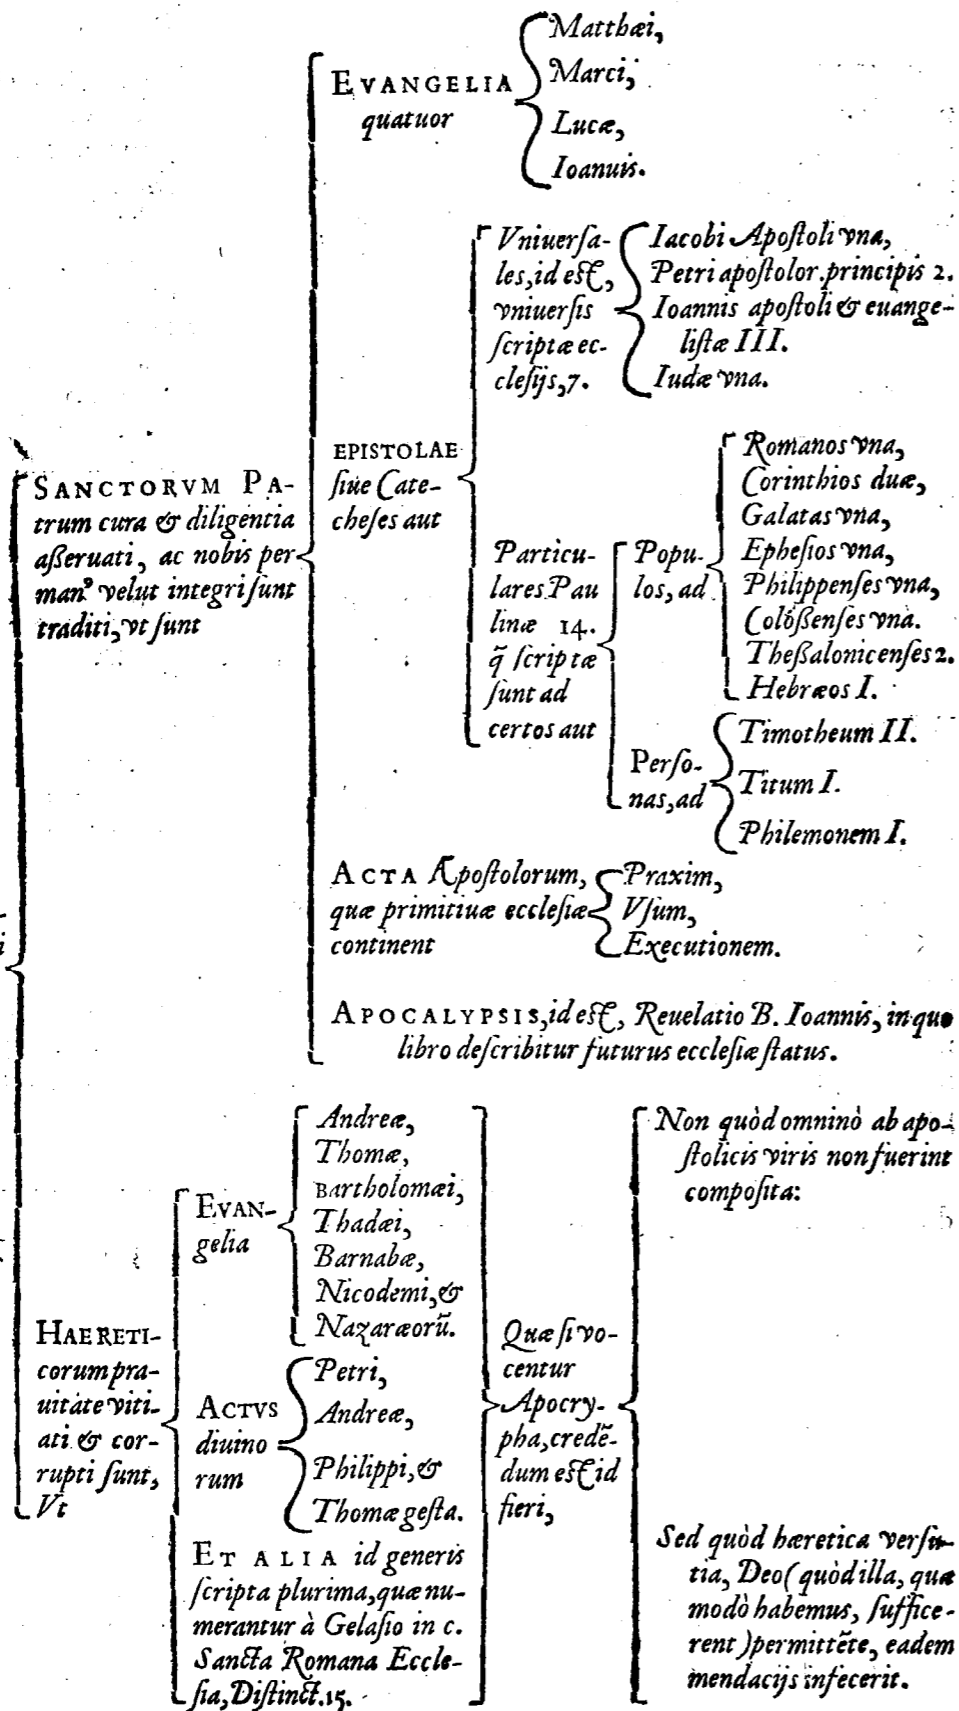 EVANGELIA
quatuor
Matthæi,
Marci,
Lucæ,
Ioanuis.
EPISTOLAE
ſiue Cate-
cheſes aut
Vniuerſa-
les, id eſt,
vniuerſis
ſcriptæ ec-
cleſijs, 7.
Iacobi Apoſtoli vna,
Petri apoſtolor. principis 2.
Ioannis apoſtoli & euange-
liſtæ III.
Iudæ vna.
SANCTORVM PA-
trum cura & diligentia
aßeruati, ac nobis per
manꝰ velut integri ſunt
traditi, vt ſunt
Particu-
lares Pau
linæ 14.
q̃ ſcriptæ
ſunt ad
certos aut
Popu-
los, ad
Romanos vna,
Corinthios duæ,
Galatas vna,
Epheſios vna,
Philippenſes vna,
Coloßenſes vna.
Theßalonicenſes 2.
Hebræos I.
Perſo-
nas, ad
Timotheum II.
Titum I.
Philemonem I.
ACTA Apoſtolorum,
quæ primitiuæ eccleſiæ
continent
Praxim,
Vſum,
Executionem.
APOCALYPSIS, id eſt, Reuelatio B. Ioannis, in quo
libro deſcribitur futurus eccleſiæ ſtatus.
HAERETI-
corum pra-
uitate viti-
ati & cor-
rupti ſunt,
Vt
EVAN-
gelia
Andreæ,
Thomæ,
Bartholomæi,
Thadæi,
Barnabæ,
Nicodemi, &
Nazaræorũ.
ACTVS
diuino
rum
Petri,
Andreæ,
Philippi, &
Thomæ geſta.
ET ALIA id generis
ſcripta plurima, quæ nu-
merantur à Gelaſio in c.
Sancta Romana Eccle-
ſia, Diſtinct. 15.
Quæ ſi vo-
centur
Apocry-
pha, credẽ-
dum eſt id
fieri,
Non quòd omninò ab apo-
ſtolicis viris non fuerint
compoſita:
Sed quòd hæretica verſu-
tia, Deo (quòd illa, quæ
modò habemus, ſuffice-
rent) permittẽte, eadem
mendacijs infecerit.